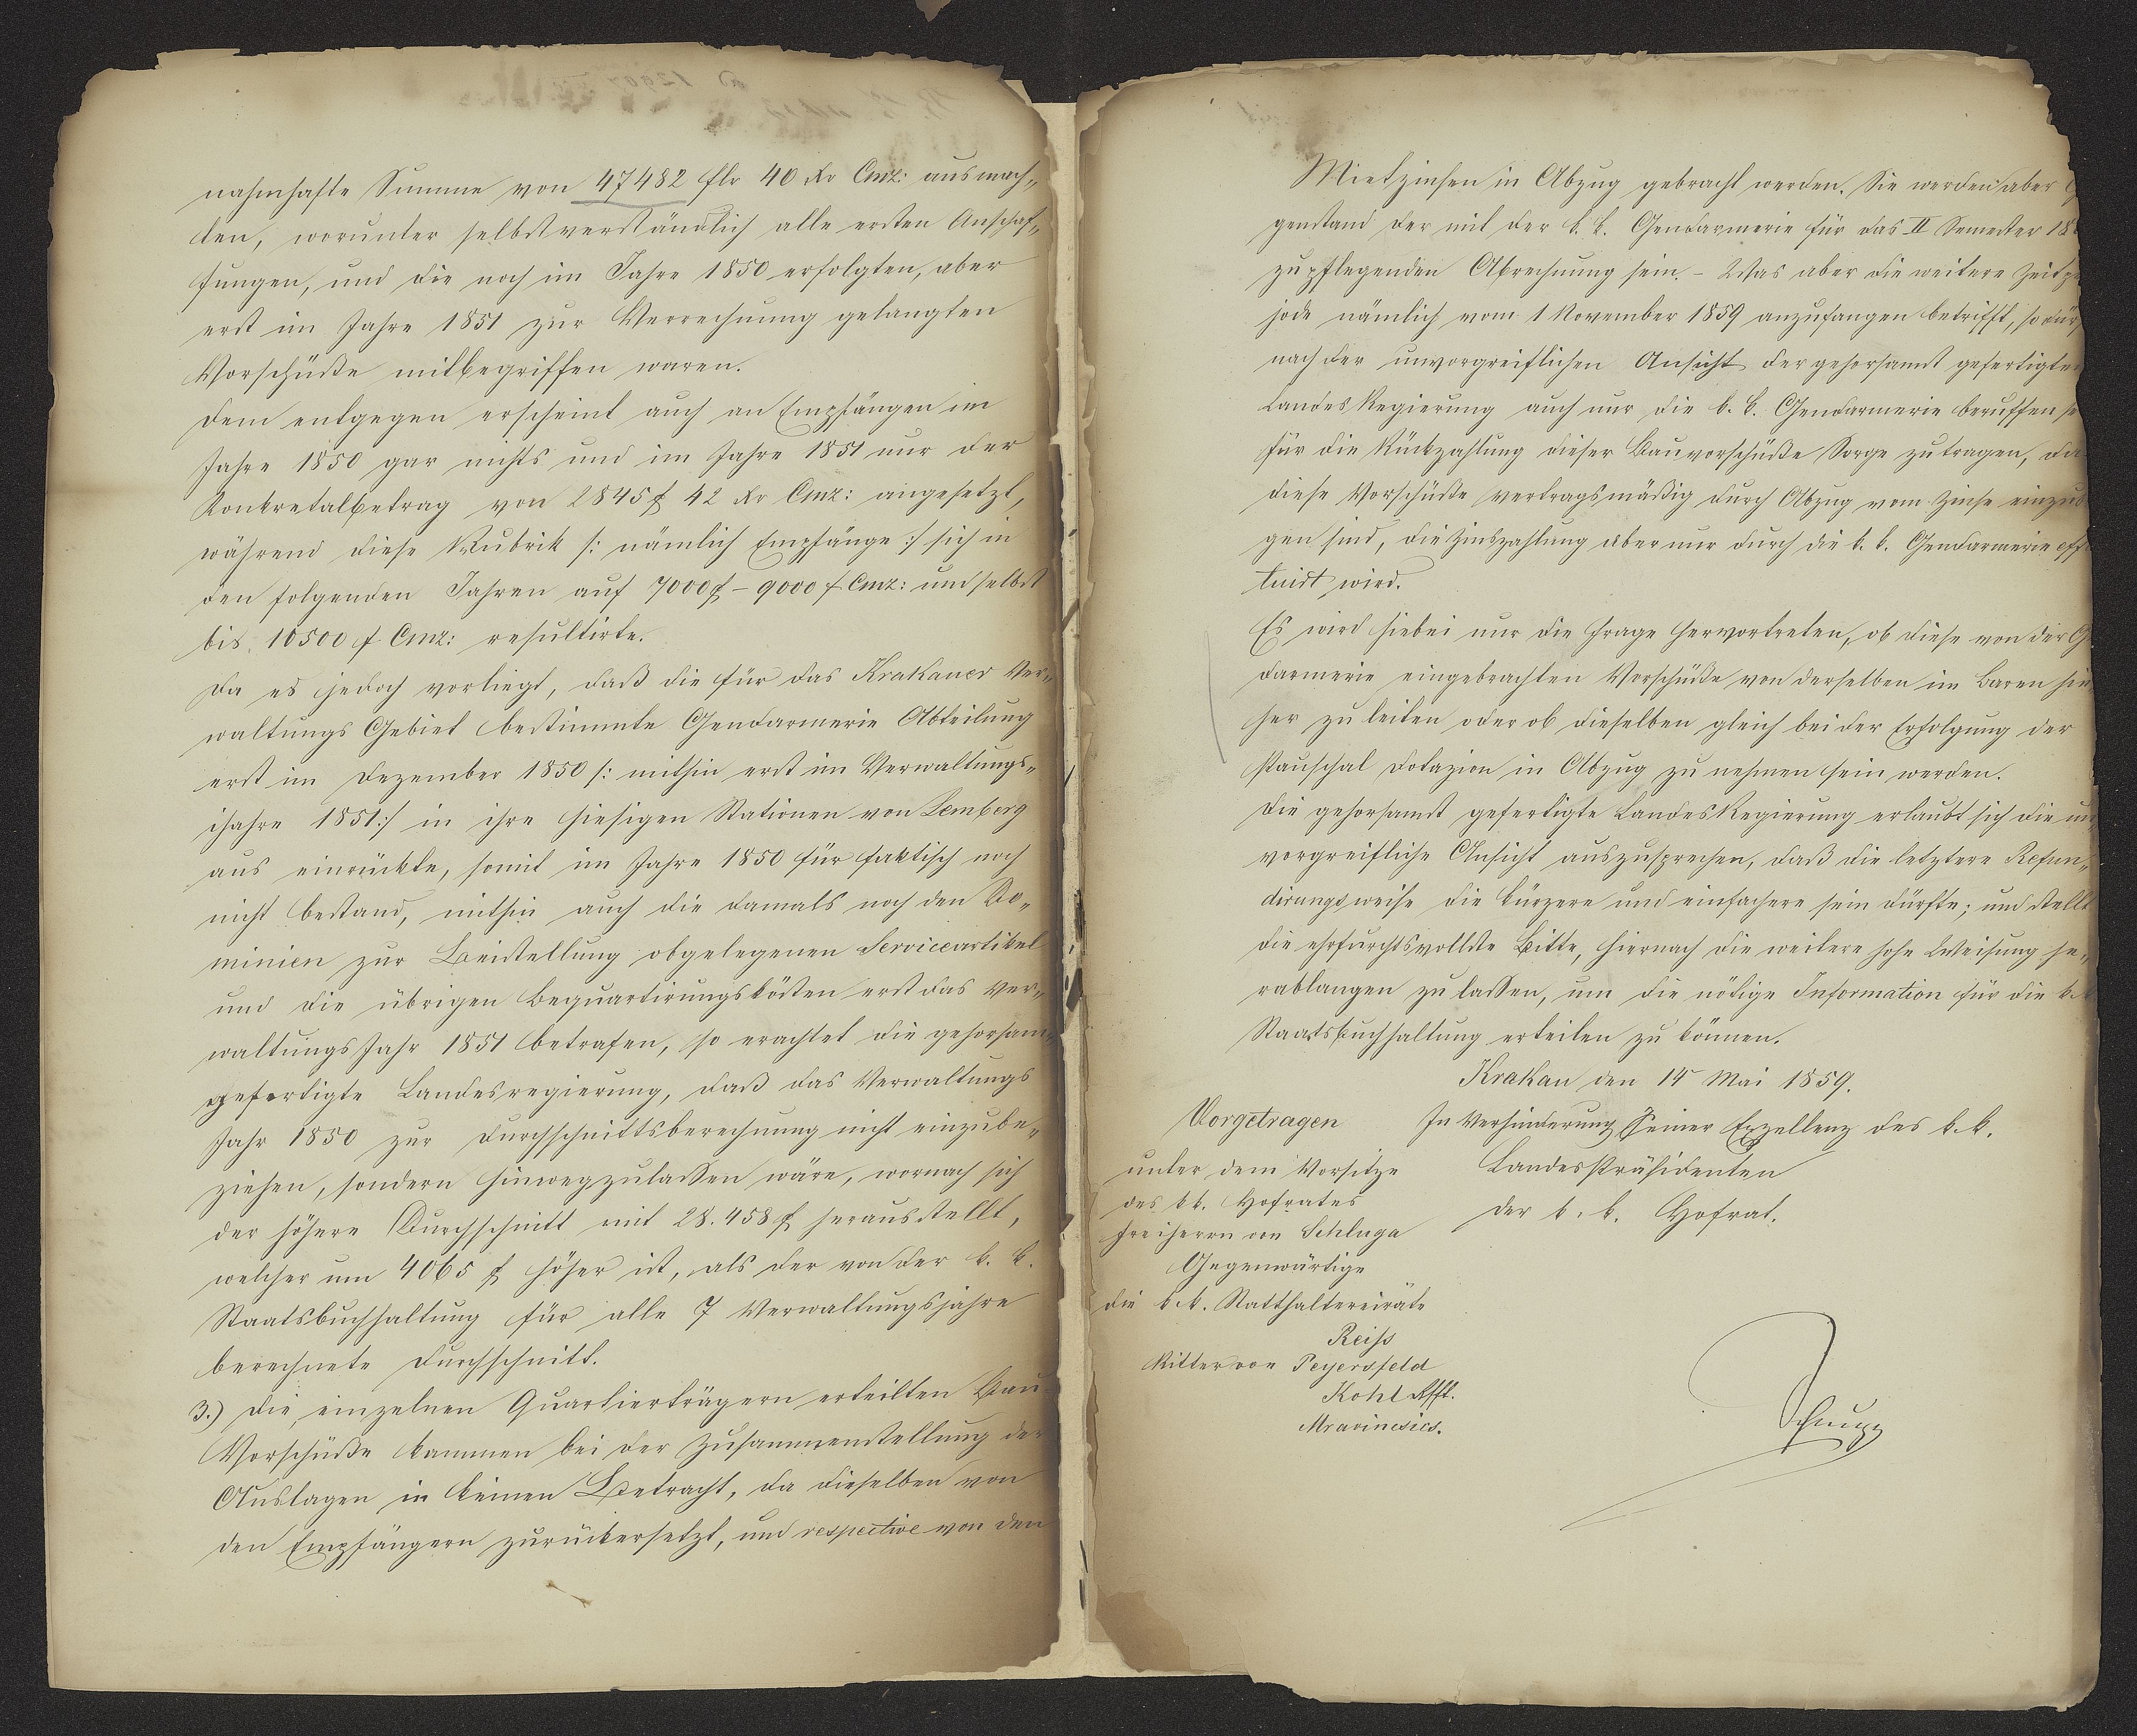 nahmhafte Summe von 47482 flr 40 Kr Cmz: ausmach„
ten, worunter selbstverständlich alle ersten Anschaf„
fungen, und die noch im Jahre 1850 erfolgten, aber
erst im Jahre 1851 zur Verrechnung gelangten
Vorschüße mitbegriffen waren.
Dem entgegen erscheint auch an Empfängen im
Jahre 1850 gar nichts und im Jahre 1851 nur der
Konkretalbetrag von 2845 f 42 Kr Cmz: angesetzt,
während diese Rubrik /: nämlich Empfänge :/ sich in
den folgenden Jahren auf 7000 f – 9000 f Cmz: und selbst
bis 10500 f Cmz: resultirte.
Da es jedoch vorliegt, daß die für das Krakauer Ver„
waltungs Gebiet bestimmte Gendarmerie Abteilung
erst im Dezember 1850 /: mithin erst im Verwaltungs„
jahre 1851 :/ in ihre hiesigen Stationen von Lemberg
aus einrückte, somit im Jahre 1850 für faktisch noch
nicht bestand, mithin auch die damals noch den Do„
minien zur Beistellung obgelegenen Serviceartikel
und die übrigen Bequartirungskösten erst das Ver„
waltungs Jahr 1851 betrafen, so erachtet die gehorsam
gefertigte Landesregierung, daß das Verwaltungs
Jahr 1850 zur Durchschnittsberechnung nicht einzube„
ziehen, sondern hinwegzulassen wäre, wornach sich
der höhere Durchschnitt mit 28.458 f herausstellt,
welcher um 4065 f höher ist, als der von der k. k.
Staatsbuchhaltung für alle 7 Verwaltungsjahre
berechnete Durchschnitt.
3.) Die einzelnen Quartierträgern erteilten Bau
Vorschüße kammen bei der Zusammenstellung der
Auslagen in keinen Betracht, da dieselben von
den Empfängern zurückersetzt, und respective von den
Mietzinsen in Abzug gebracht werden. Sie werden aber G
genstand der mit der k. k. Gendarmerie für das II Semester 18
zu pflegenden Abrechnung sein. – Was aber die weitere Zeitpe
jode nämlich vom 1 November 1859 anzufangen betrifft, so dür
nach der unvorgreiflichen Ansicht der gehorsamst gefertigten
Landes Regierung auch nur die k. k. Gendarmerie beruffen se
für die Rückzahlung dieser Bauvorschüße Sorge zu tragen, da
diese Vorschüße vertragsmäßig durch Abzug vom Zinse einzub
gen sind, die Zinszahlung aber nur durch die k. k. Gendarmerie effe
tuirt wird.
Es wird hiebei nur die Frage hervortreten, ob diese von der Ge
darmerie eingebrachten Vorschüße von derselben im Baren hie
her zu leiten oder ob dieselben gleich bei der Erfolgung der
Pauschal Dotazion in Abzug zu nehmen sein werden.
Die gehorsamst gefertigte Landes Regierung erlaubt sich die un
vorgreifliche Ansicht auszusprechen, daß die letztere Refun„
dirungsweise die kürzere und einfachere sein dürfte; und stellt
die ehrfurchtsvollste Bitte, hiernach die weitere hohe Weisung he„
rablangen zu lassen, um die nötige Information für die k. k
Staatsbuchhaltung erteilen zu können.
Krakau den 14 Mai 1859.
Vorgetragen
unter dem Vorsitze
des k k. Hofrates
Freiherrn von Schluga
Gegenwärtige
die k. k. Statthaltereiräte
Reiss
Ritter von Peyersfeld
Kohl
Mravincsics.
In Verhinderung Seiner Exzellenz des k. k.
Landespräsidenten
der k. k. Hofrat.